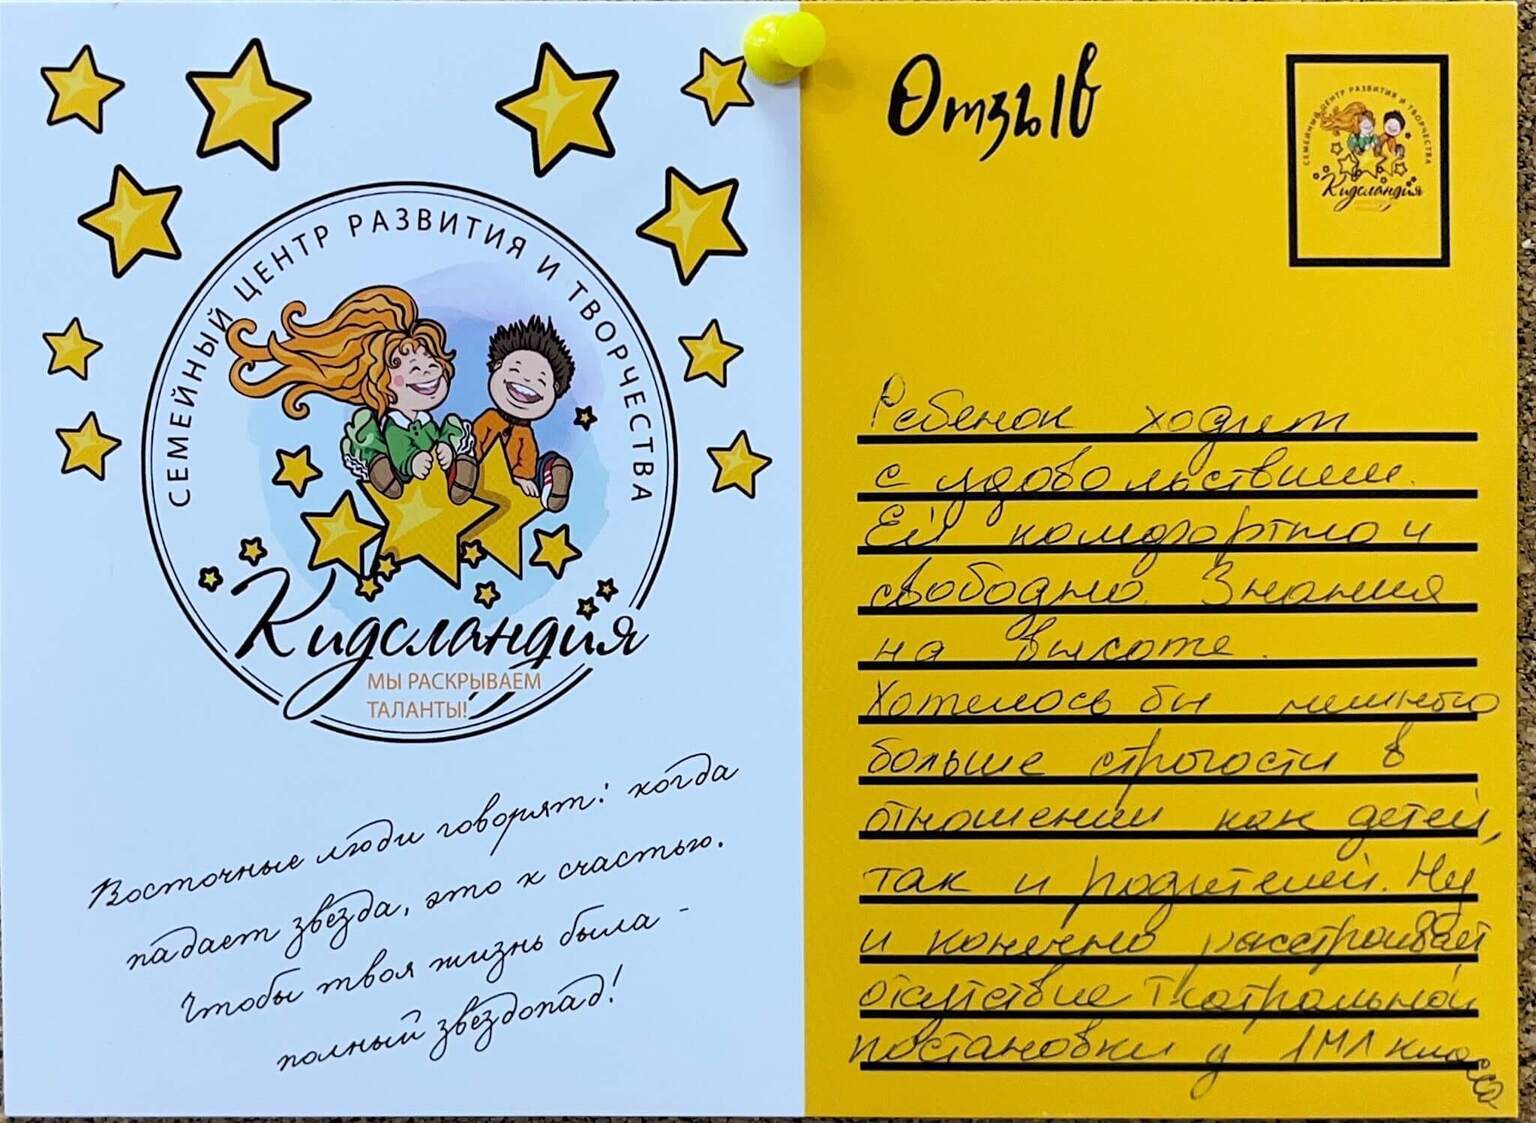 СЕМЕЙНЫЙ ЦЕНТР РАЗВИТИЯ И ТВОРЧЕСТВА
Кидсландия
МЫ РАСКРЫВАЕМ
ТАЛАНТЫ!
Восточные люди говорят: когда
падает звезда, это к счастью.
Чтобы твоя жизнь была -
полный звездопад!
Отзыв
СЕМЕЙНЫЙ ЦЕНТР РАЗВИТИЯ И ТВОРЧЕСТВА
Кидсландия
Ребенок ходит
с удовольствием.
Ей комфортно и
свободно. Знания
на высоте.
Хотелось бы немного
больше строгости в
отношении как детей,
так и родителей. Ну
и конечно расстраивает
отсутствие театральной
постановки у 1МЛ класса